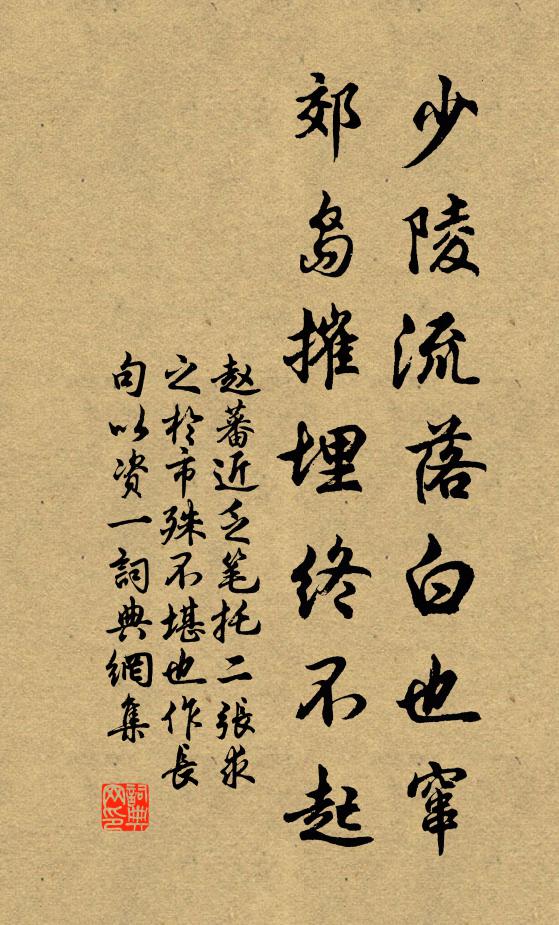 少陵流落白也窜
郊岛摧埋终不起
赵蕃近乏笔托二张求
之于市殊不堪也作长
句以资一词典網集
詞典网印